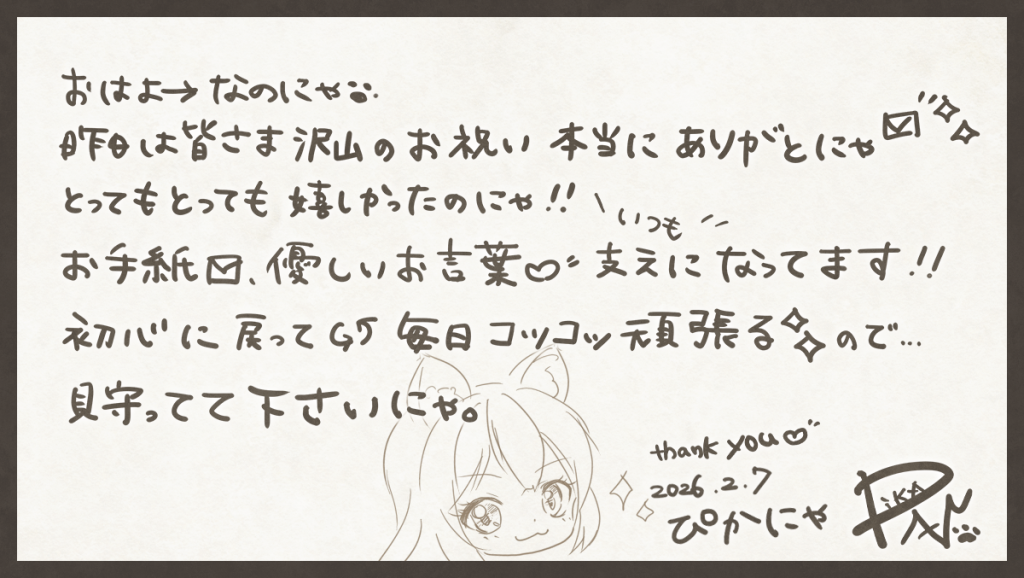 おはよ→なのにゃ
昨日は皆さま沢山のお祝い本当にありがとにゃ
とってもとっても嬉しかったのにゃ!!
いつも
お手紙、優しいお言葉♡支えになってます!!
初心に戻って 毎日コツコツ頑張るので...
見守ってて下さいにゃ。
thank you♡
2026.2.7
ぴかにゃ